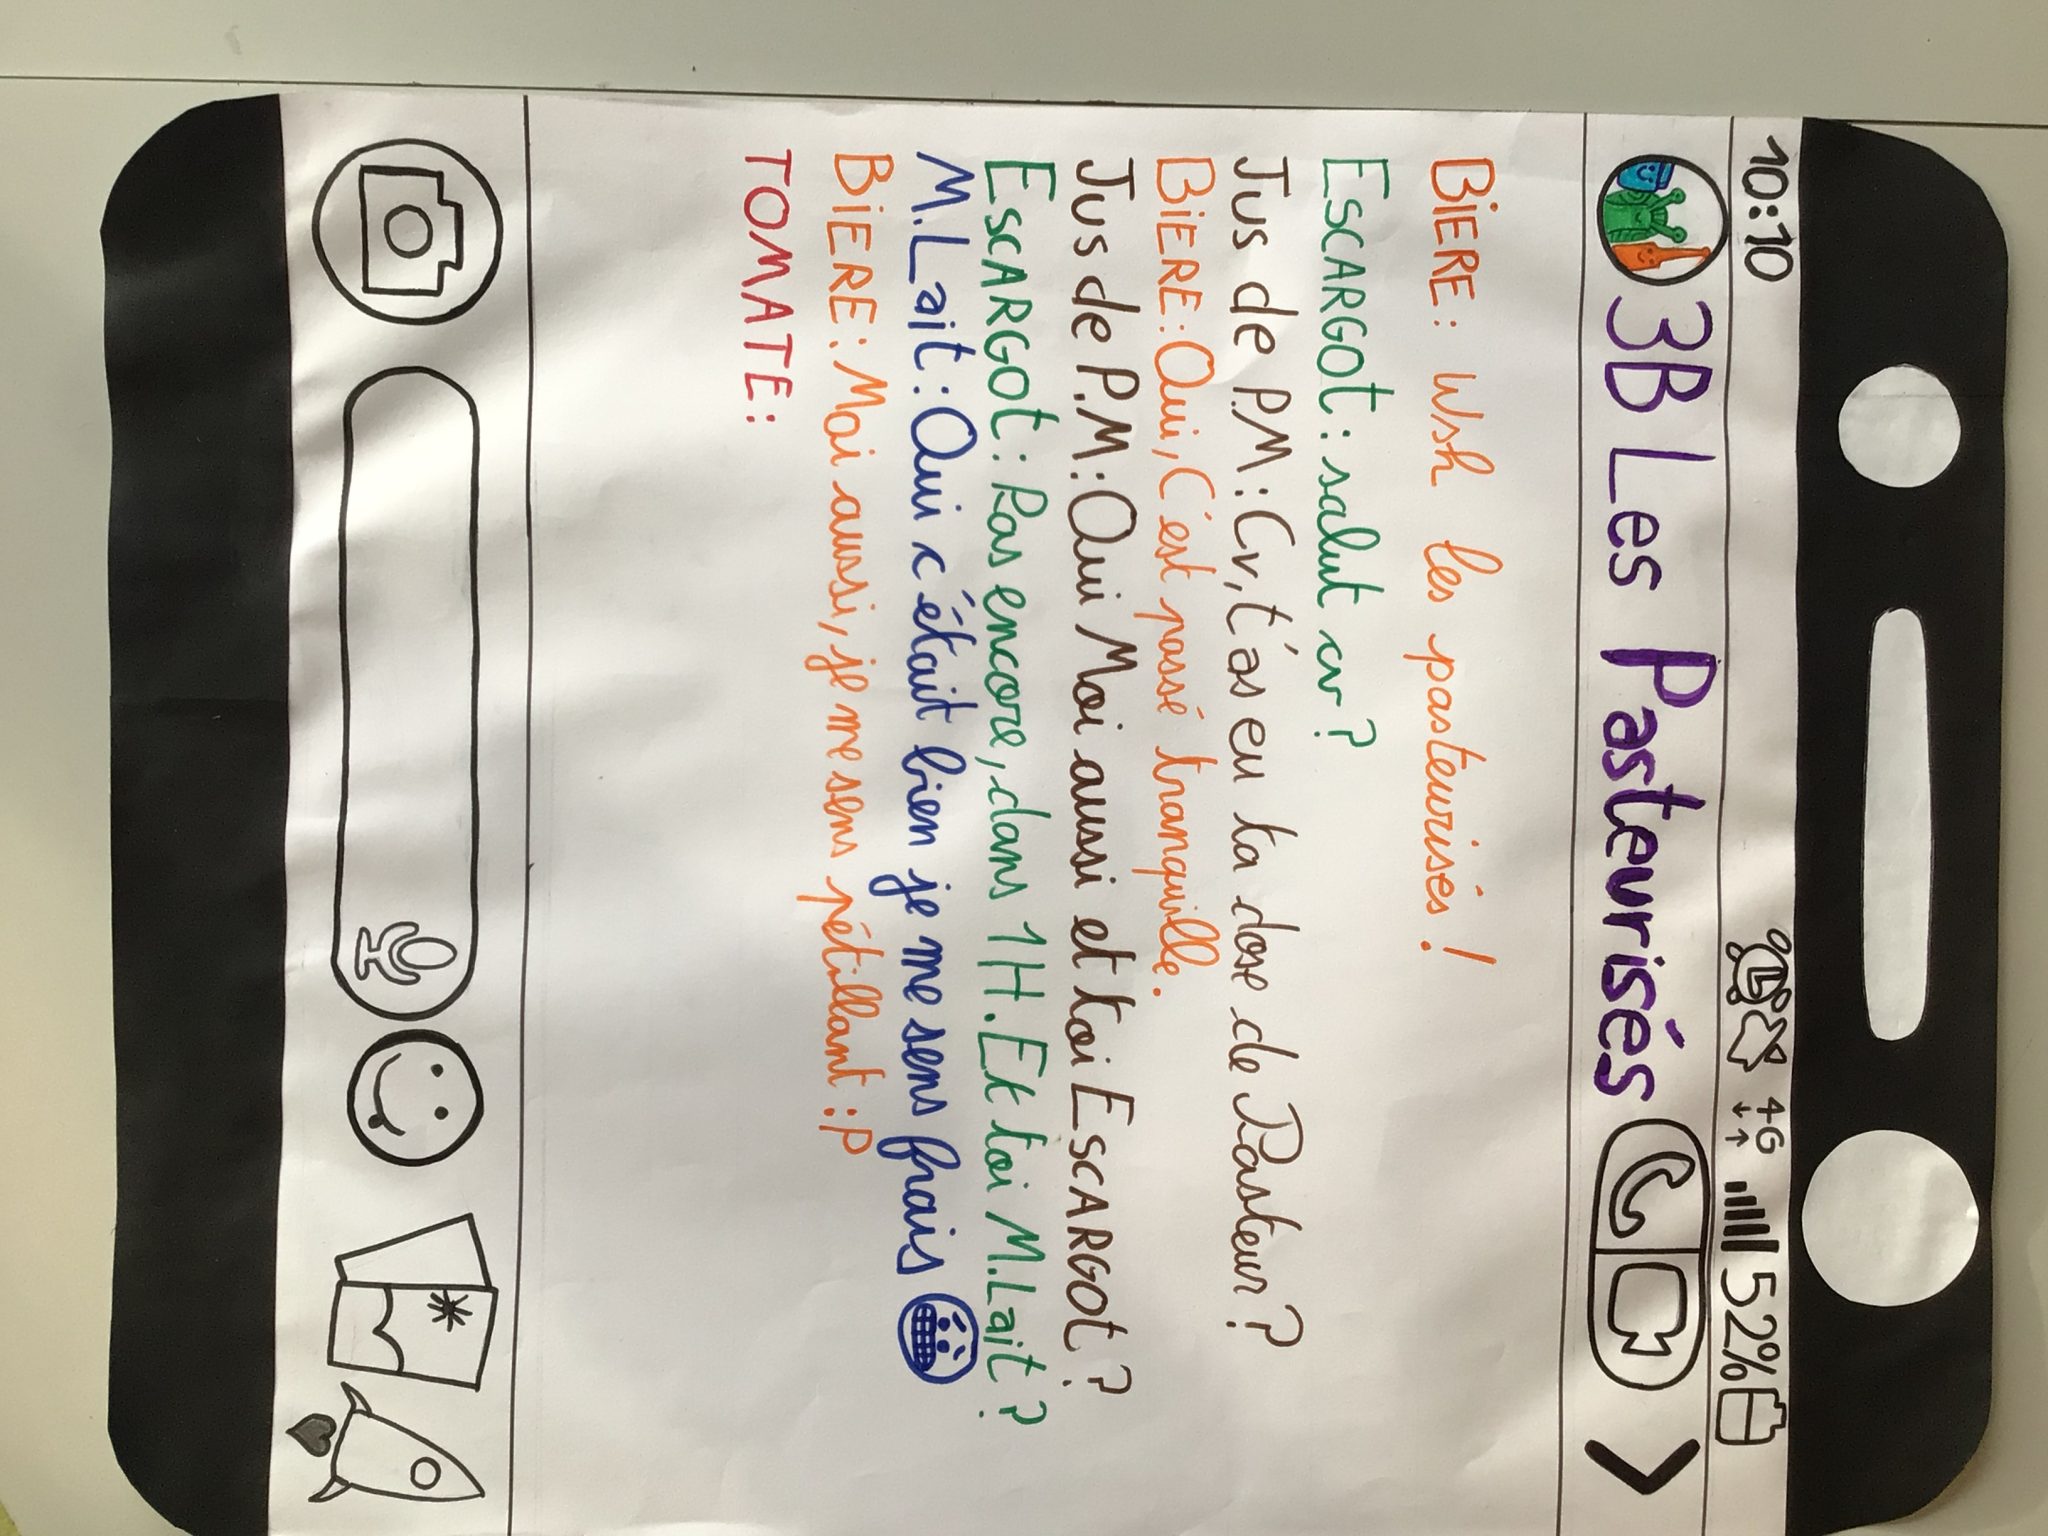 10:10 4G 52%
3B Les Pasteurisés
BIERE: Wsh les pasteurisés!
ESCARGOt: salut cv?
Jus de P.M: Cv, t'as eu ta dose de Pasteur?
BIERE: Oui, C'est passé tranquille.
Jus de P.M: Oui Moi aussi et toi ESCARGOt?
ESCARGOt: Pas encore, dans 1H. Et toi M.Lait?
M.Lait: Oui c'était bien je me sens frais
BIERE: Moi aussi, je me sens pétillant :P
TOMATE: